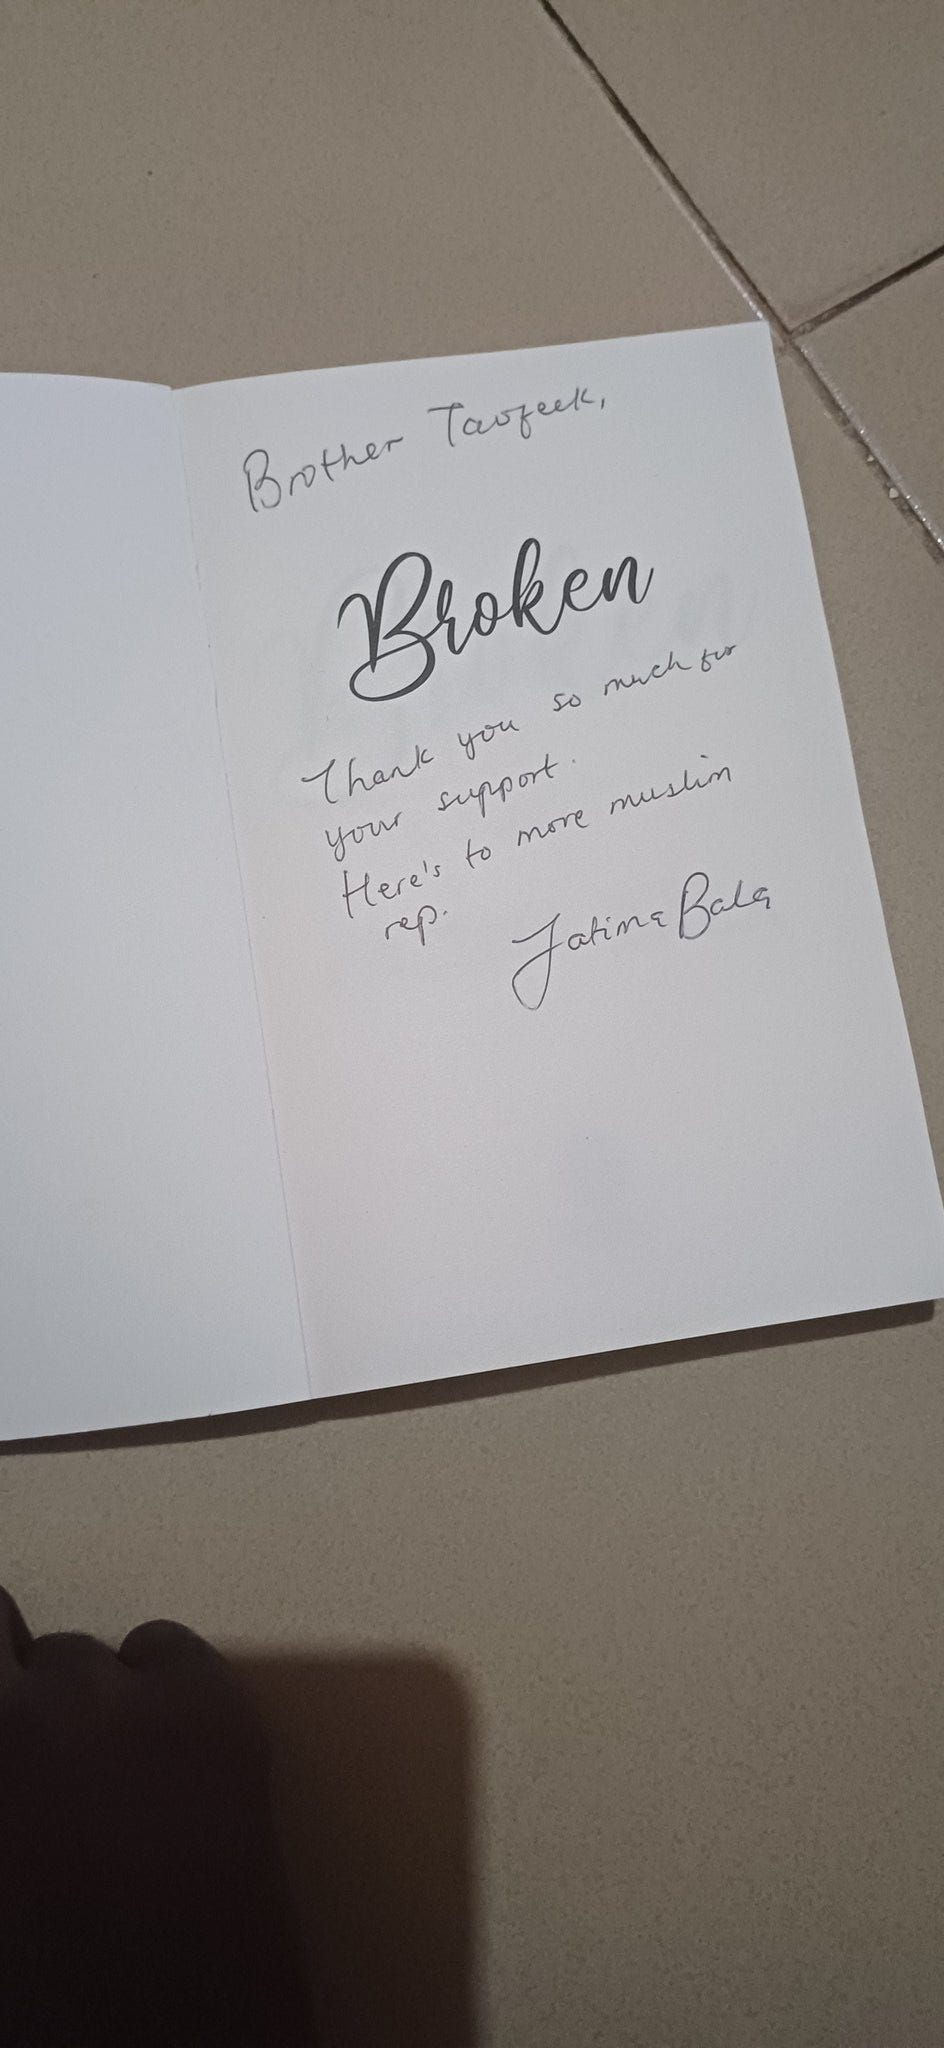 Brother Taofeek,
Broken
Thank you so much for
your support.
Here's to more muslim
rep.
Fatima Bala